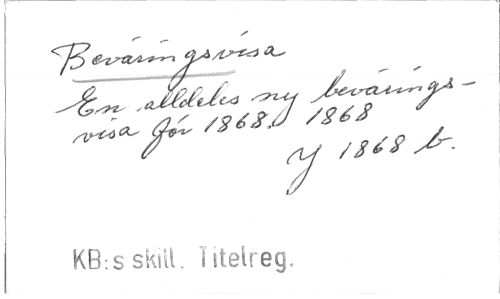 Beväringsvisa
En alldeles ny bevärings-
visa för 1868. 1868
Y 1868 b.
KB:s skill. Titelreg.